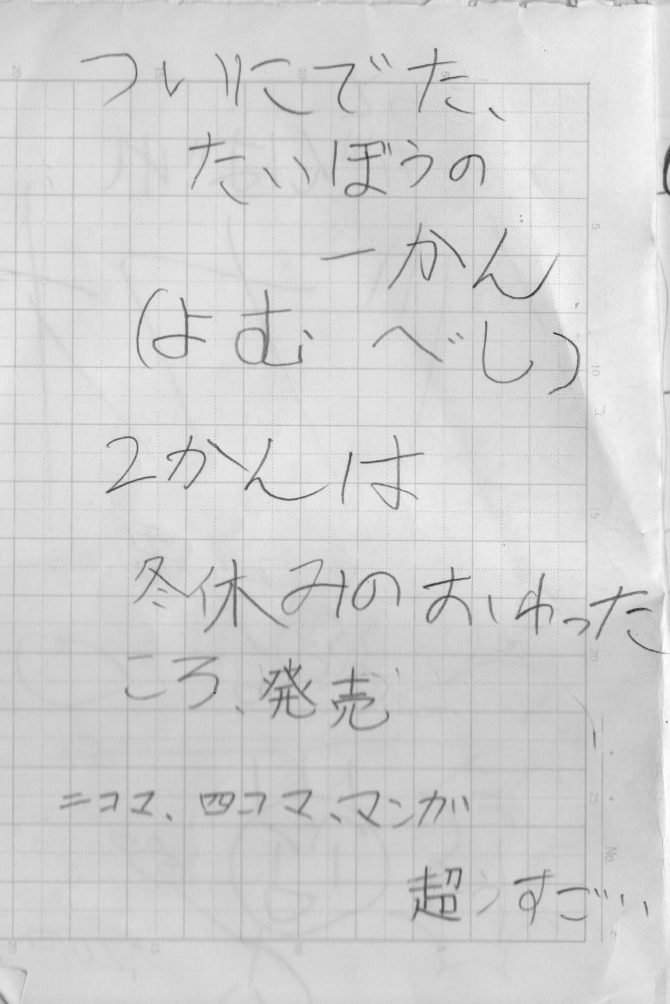 ついにでた、
たいぼうの
一かん
(よむべし)
2かんは
冬休みのおわった
ころ、発売
ニコマ、四コマ、マンガ
超うすごい